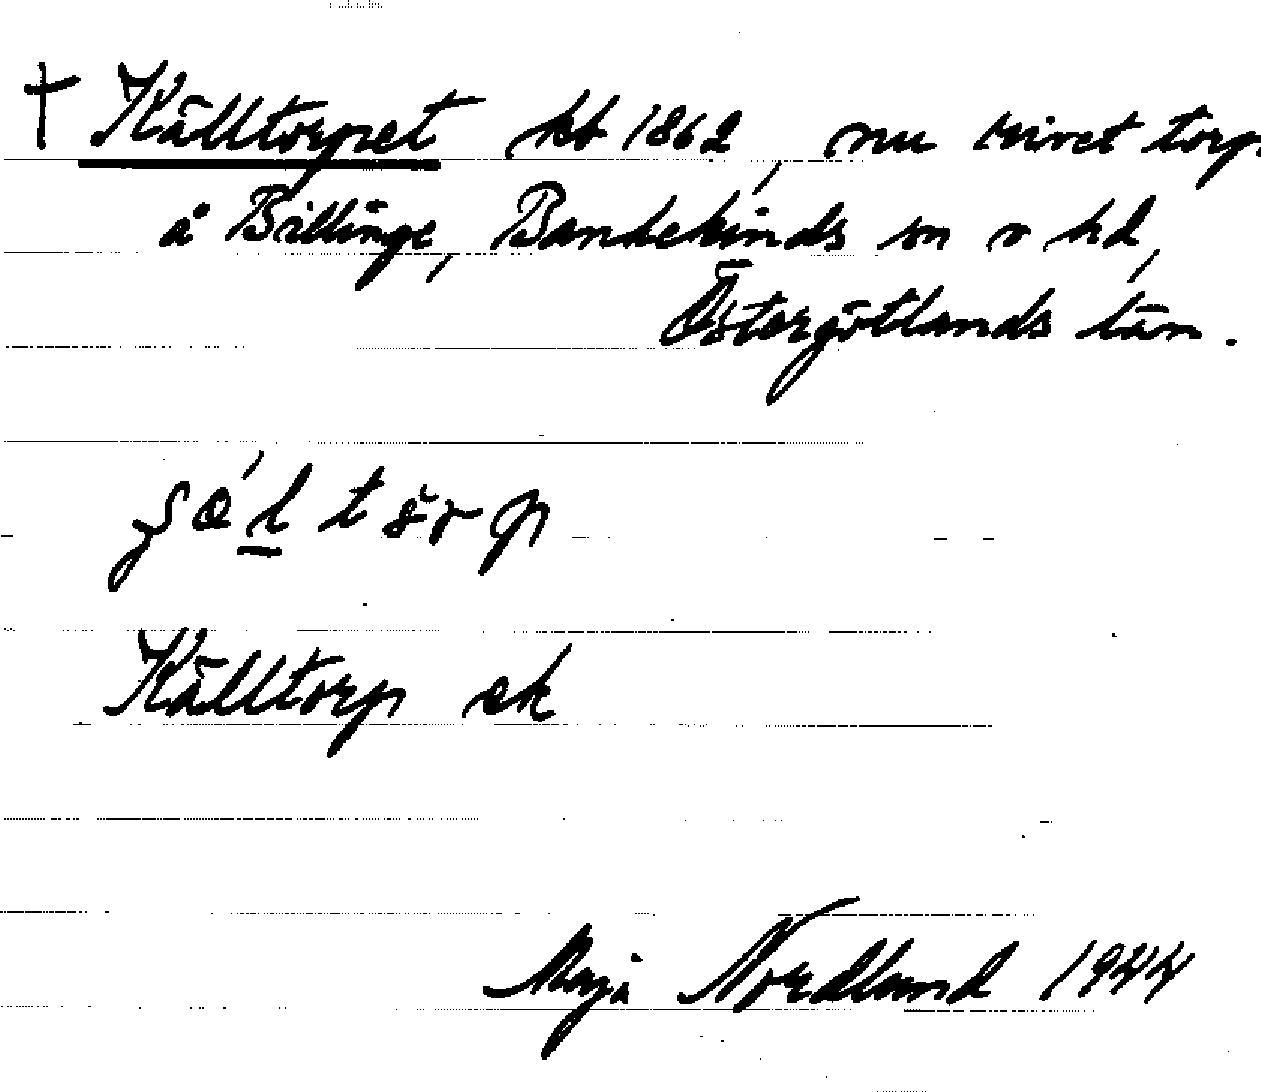 † Källtorpet kb 1862, nu rivet torp
å Billinge, Bankekinds sn o hd,
Östergötlands län.
Källtorp ek
Maja Nordlund 1944